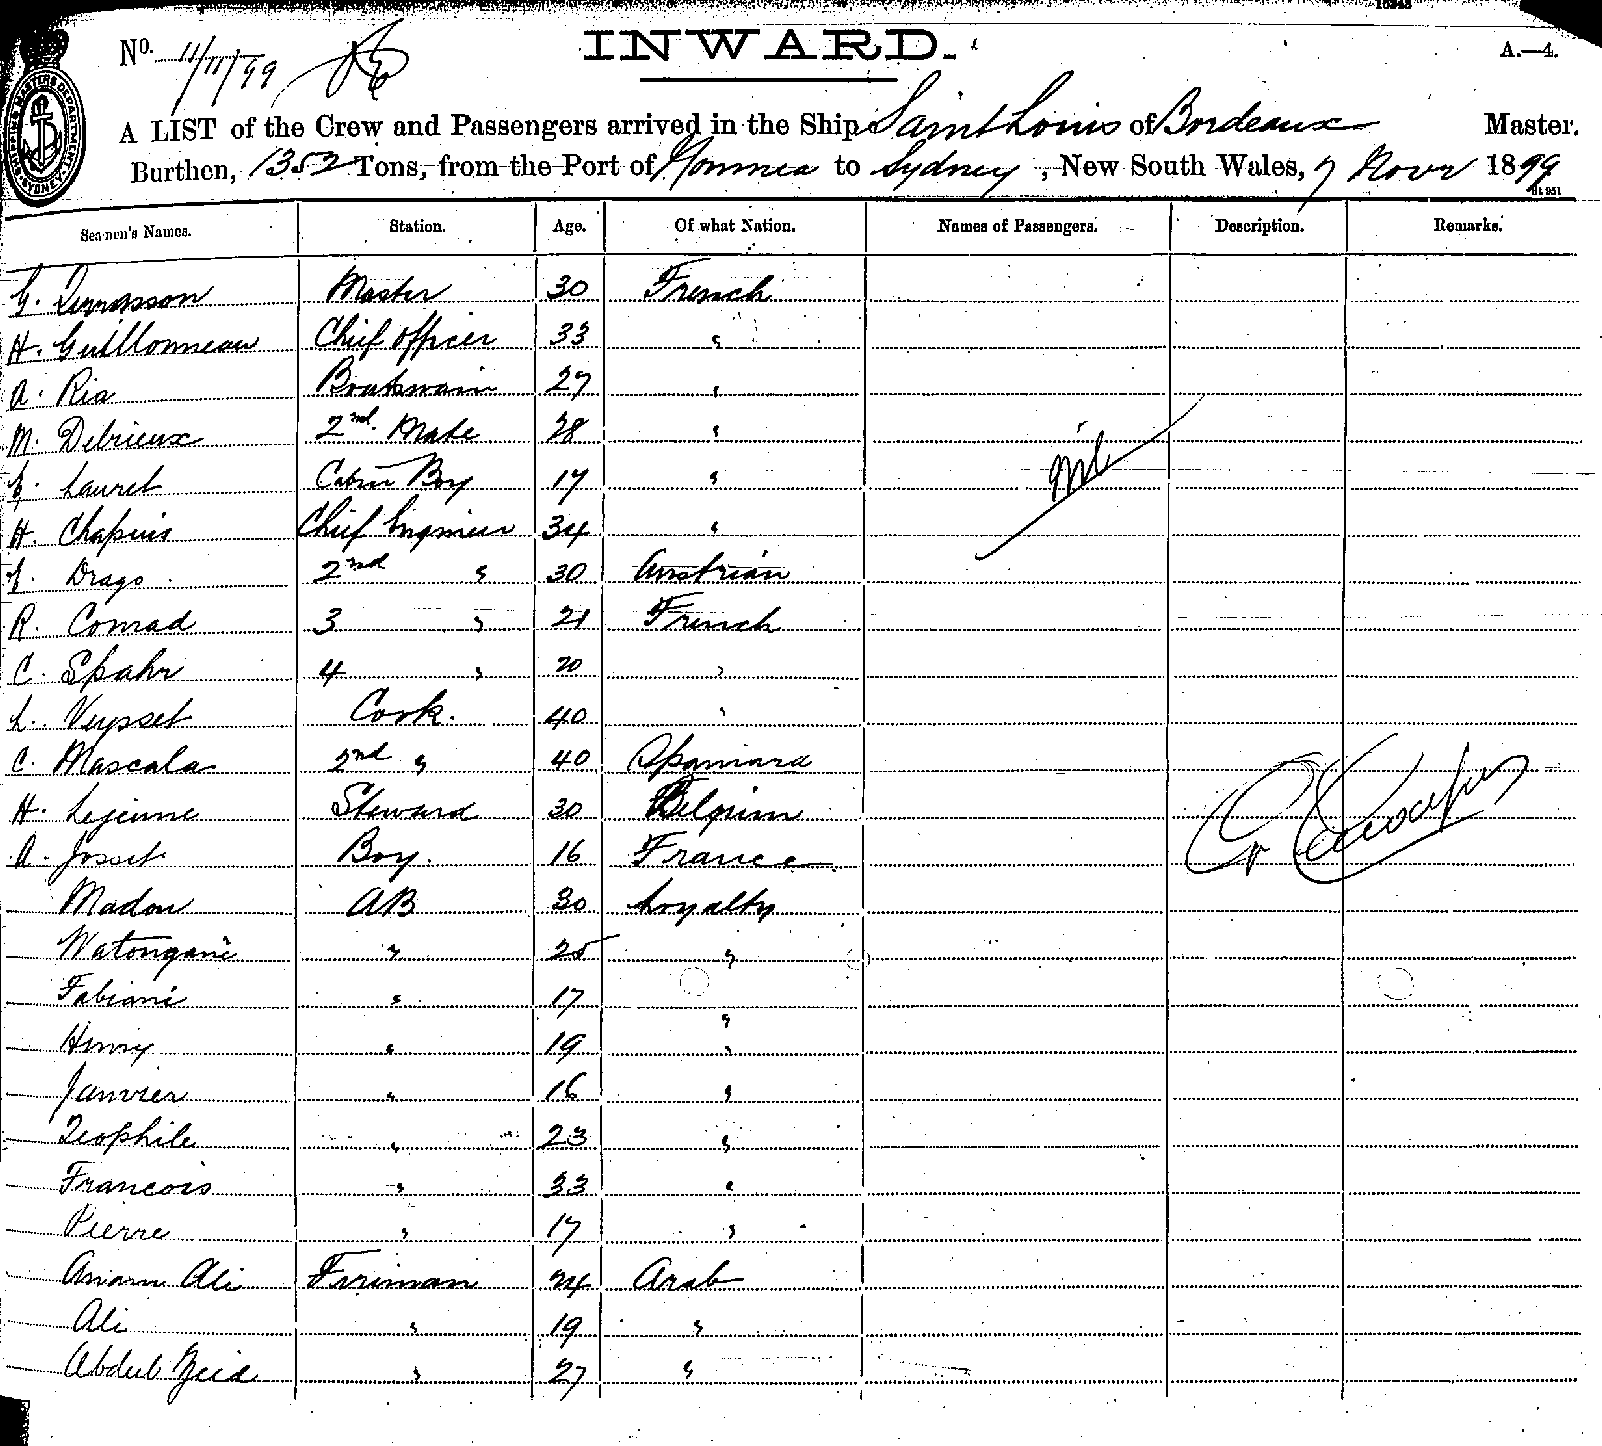 15245
No. 11/11/99
INWARD.
A.—4.
A LIST of the Crew and Passengers arrived in the Ship Saint Louis of Bordeaux Master.
Burthen, 1352 Tons, from the Port of Noumea to Sydney, New South Wales, 7 Novr 1899
Seamen's Names. Station. Age. Of what Nation. Names of Passengers. Description. Remarks.
Master 30 French
H. Guillonneau Chief Officer 33 "
A. Ria Boatswain 27 "
M. Debrieux 2nd. Mate 28 "
Lauret Cabin Boy 17 " Nil
H. Chapuis Chief Engineer 34 "
Drago 2nd " 30 Austrian
R. Conrad 3 " 21 French
C. Spahr 4 " 20 "
L. Veysset Cook. 40 "
C. Mascala 2nd " 40 Spaniard
H. Lejeune Steward 30 Belgium
A. Josset Boy. 16 France
Madou AB 30 Loyalty
Watongane " 25 "
Fabiani " 17 "
Henry " 19 "
Janvier " 16 "
Teophile " 23 "
Francois " 33 "
Pierre " 17 "
Ali Fireman 24 Arab
Ali " 19 "
Abdul Zeid " 27 "